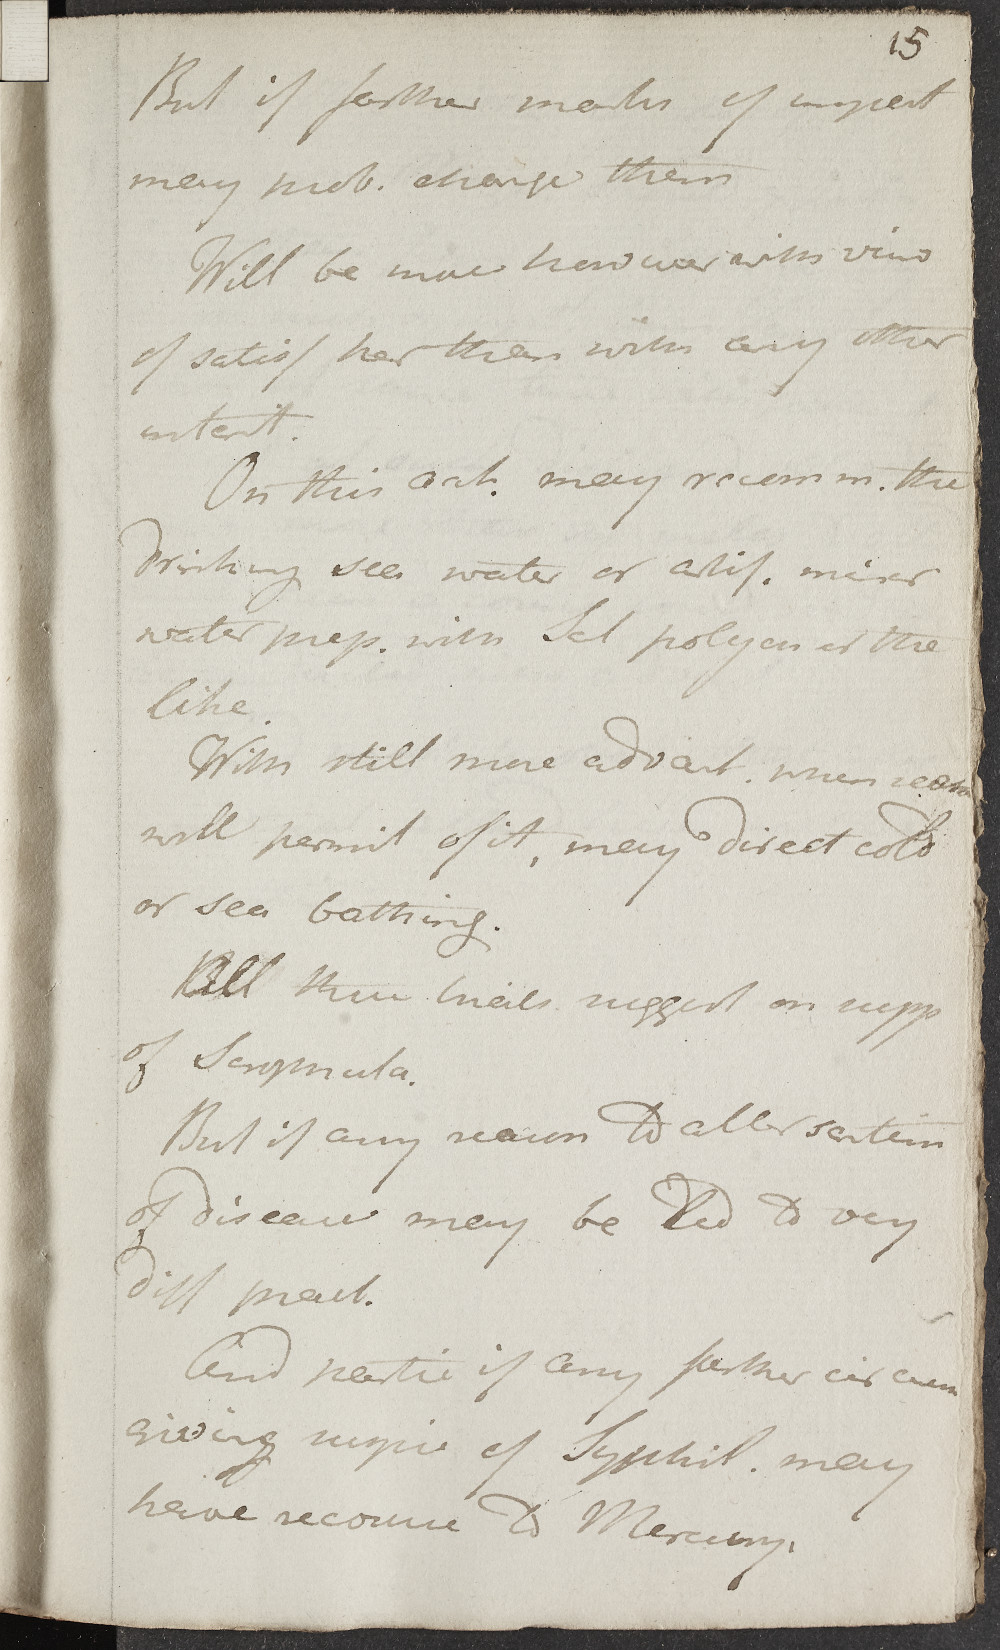 15
But if farther marks of impert
may prob. change them
Will be more however with view
of satisf her than with any other
intent.
On this act. may recomm. the
drinking sea water or artif. miner
water prep. with Sal polych or the
like.
With still more advant. when season
will permit of it, may direct cold
or sea bathing.
All these trials suggest on supp
of Scrophula.
But if any reason to alter sentim
of disease may be led to very
diff pract.
And partic if any farther circum
giving suspic of Syphil. may
have recourse to Mercury.